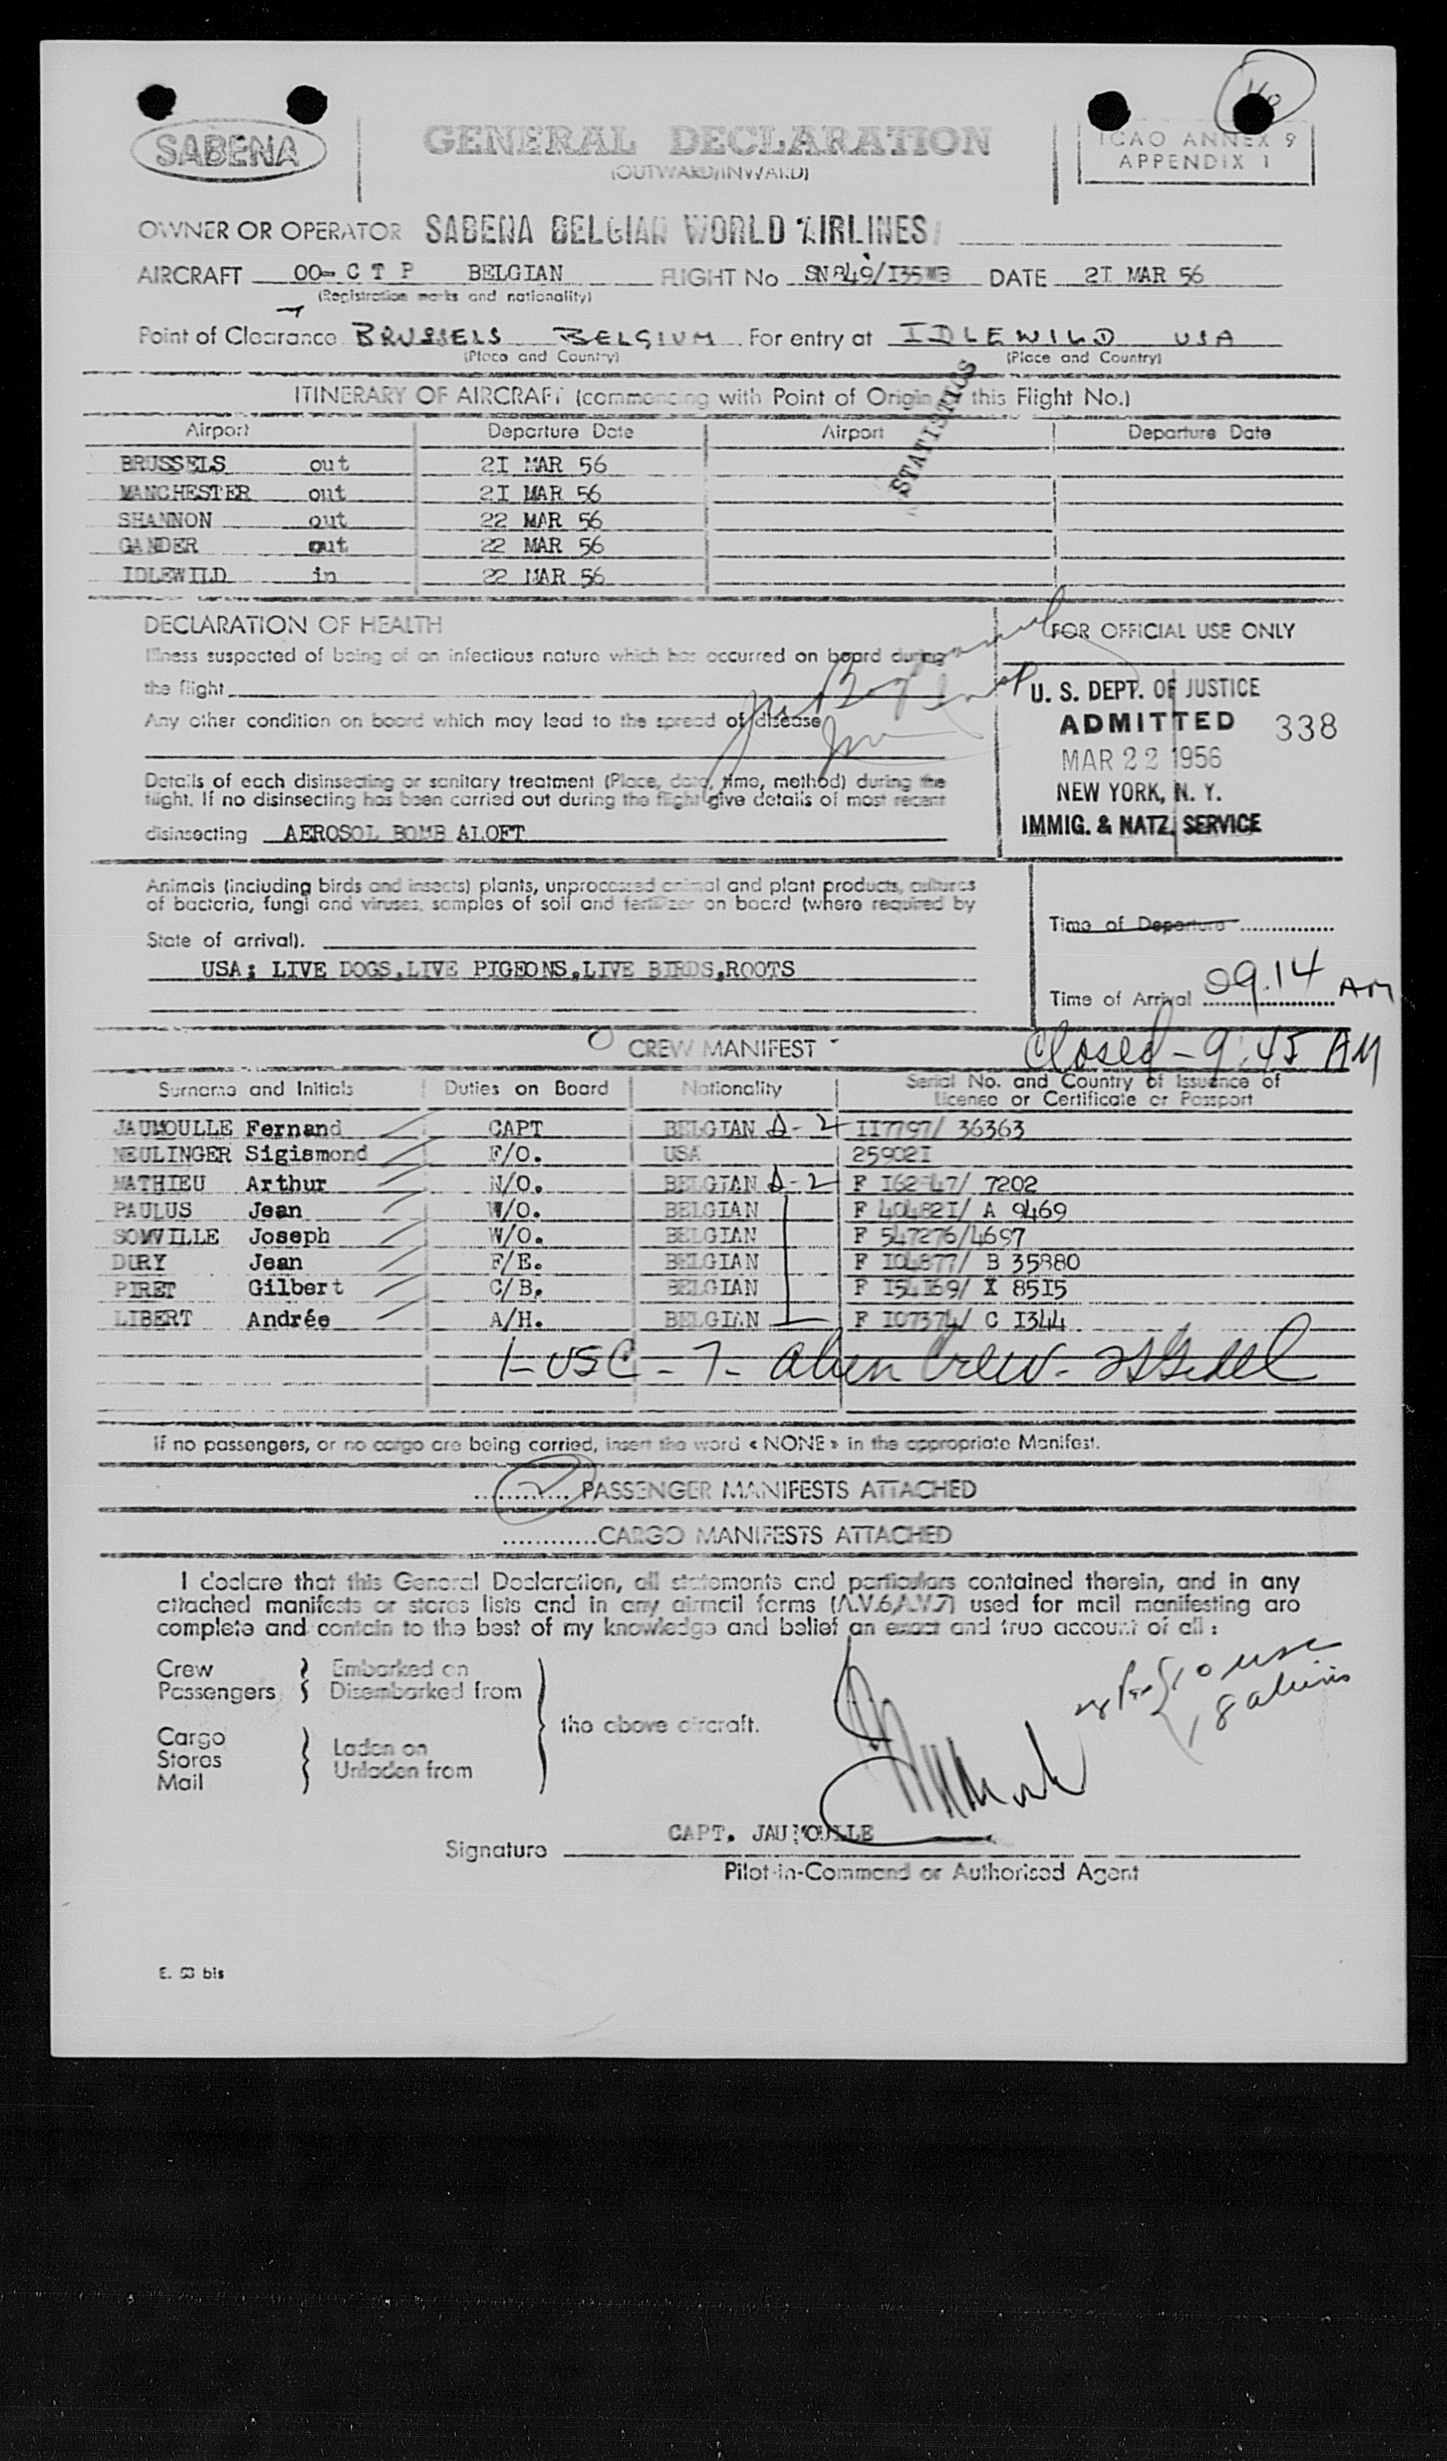 SABENA
GENERAL DECLARATION
(OUTWARD/INWARD)
ICAO ANNEX 9
APPENDIX 1
OWNER OR OPERATOR SABENA BELGIAN WORLD AIRLINES
AIRCRAFT OO-CTP BELGIAN FLIGHT No SN 849/I35WB DATE 2I MAR 56
(Registration marks and nationality)
Point of Clearance BRUSSELS BELGIUM For entry at IDLEWILD USA
(Place and Country) (Place and Country)
STATISTICS
ITINERARY OF AIRCRAFT (commencing with Point of Origin this Flight No.)
Airport Departure Date Airport Departure Date
BRUSSELS out 2I MAR 56
MANCHESTER out 2I MAR 56
SHANNON out 22 MAR 56
GANDER out 22 MAR 56
IDLEWILD in 22 MAR 56
DECLARATION OF HEALTH
FOR OFFICIAL USE ONLY
Illness suspected of being of an infectious nature which has occurred on board during
the flight
Any other condition on board which may lead to the spread of disease
Details of each disinsecting or sanitary treatment (Place, date, time, method) during the
flight. If no disinsecting has been carried out during the flight give details of most recent
disinsecting AEROSOL BOMB ALOFT
U. S. DEPT. OF JUSTICE
ADMITTED 338
MAR 22 1956
NEW YORK, N. Y.
IMMIG. & NATZ. SERVICE
Animals (including birds and insects) plants, unprocessed animal and plant products, cultures
of bacteria, fungi and viruses, samples of soil and fertilizer on board (where required by
State of arrival).
USA: LIVE DOGS,LIVE PIGEONS,LIVE BIRDS,ROOTS
Time of Departure
Time of Arrival 09.14 AM
Closed - 9:45 AM
CREW MANIFEST
Surname and Initials Duties on Board Nationality Serial No. and Country of Issuance of
License or Certificate or Passport
JAUMOULLE Fernand CAPT BELGIAN D-2 II7797/ 36363
NEULINGER Sigismond F/O. USA 25902I
MATHIEU Arthur N/O. BELGIAN D-2 F 47/ 7202
PAULUS Jean W/O. BELGIAN F 40482I/ A 9469
SOMVILLE Joseph W/O. BELGIAN F 547276/4697
DURY Jean F/E. BELGIAN F I04877/ B 35880
PIRET Gilbert C/B. BELGIAN F I54I69/ X 85I5
LIBERT Andrée A/H. BELGIAN F I07374/ C I344
1-USC - 7- alien Crew-
If no passengers, or no cargo are being carried, insert the word « NONE » in the appropriate Manifest.
2 PASSENGER MANIFESTS ATTACHED
CARGO MANIFESTS ATTACHED
I declare that this General Declaration, all statements and particulars contained therein, and in any
attached manifests or stores lists and in any airmail forms (A.V.6,A.V.7) used for mail manifesting are
complete and contain to the best of my knowledge and belief an exact and true account of all :
Crew
Passengers
Embarked on
Disembarked from
Cargo
Stores
Mail
Laden on
Unladen from
the above aircraft.
10 USC
18 aliens
CAPT. JAUMOULLE
Signature
Pilot-in-Command or Authorised Agent
E. 53 bis